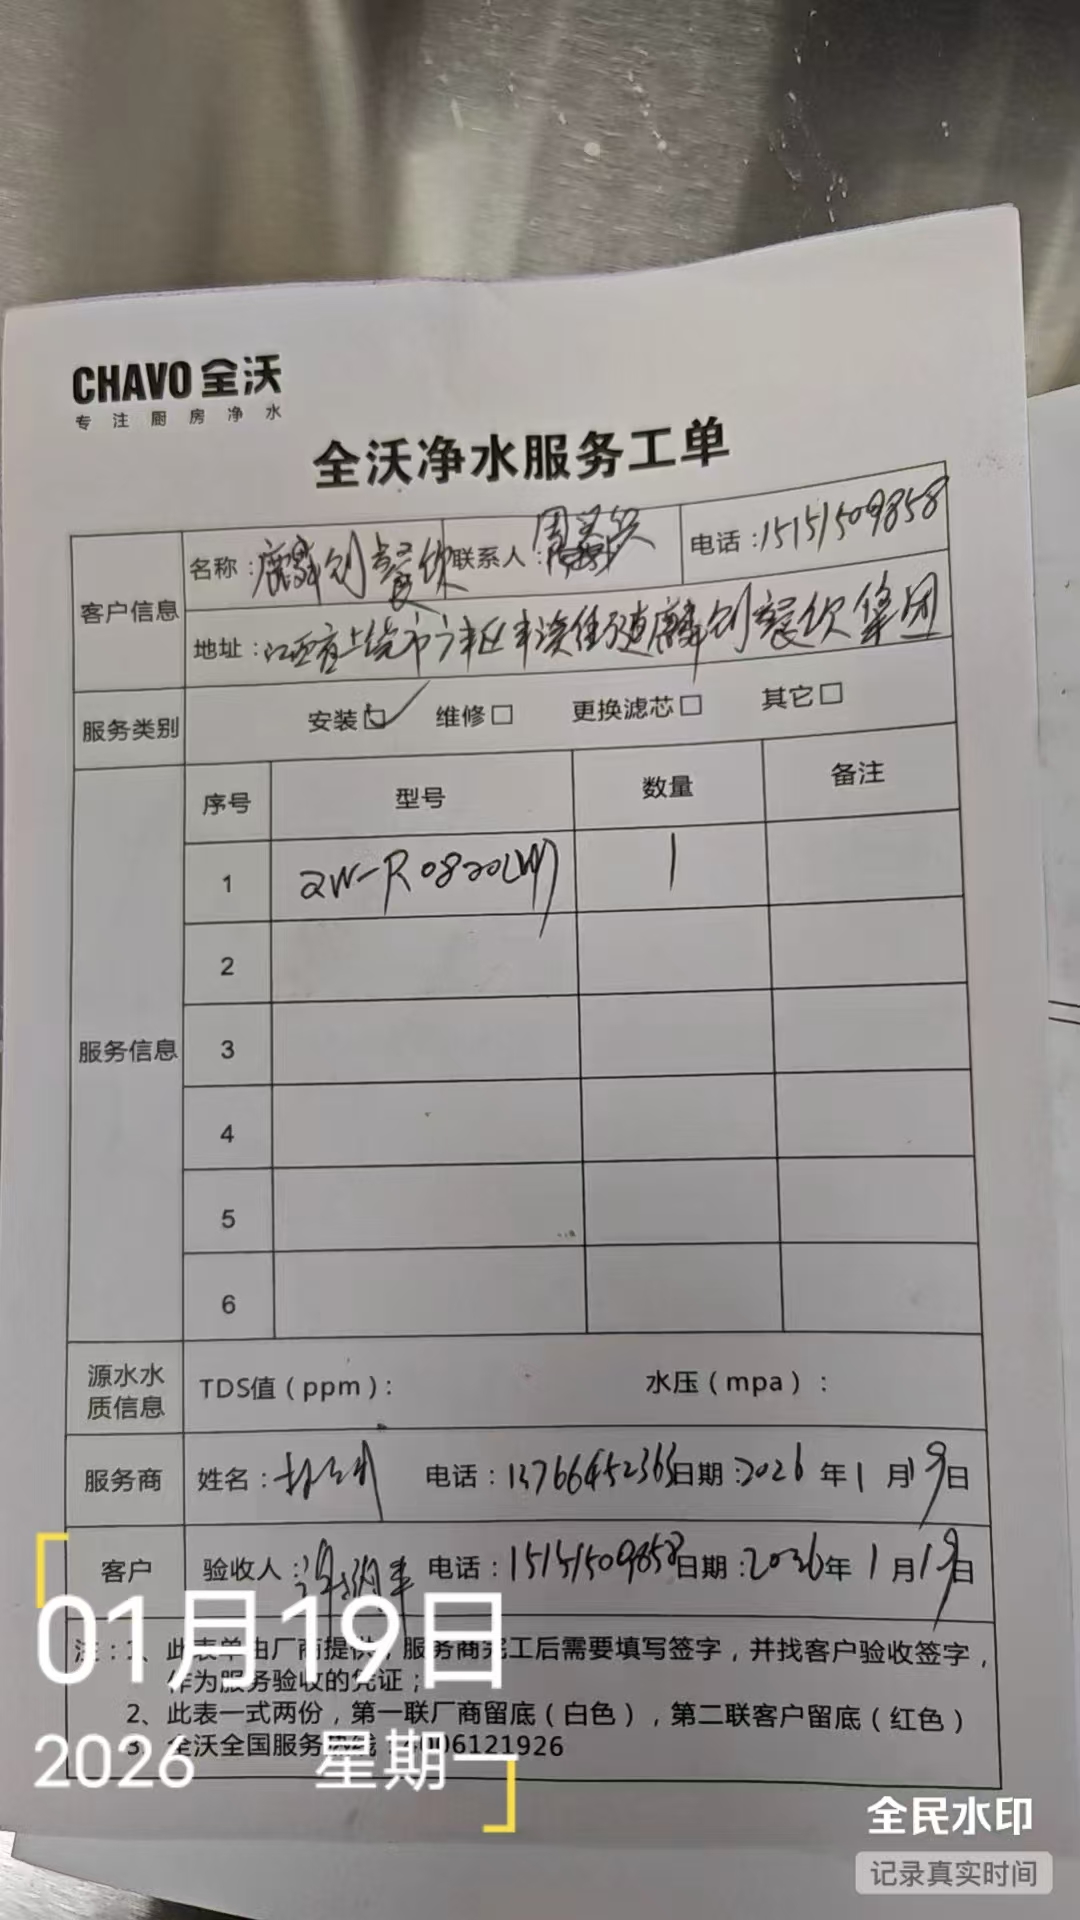 CHAVO 全沃
专注厨房净水
全沃净水服务工单
客户信息
名称：麟创餐饮 联系人： 电话：15151509858
地址：江西省上饶市广丰区丰溪街道麟创餐饮集团
服务类别
安装☑ 维修□ 更换滤芯□ 其它□
服务信息
序号 型号 数量 备注
1 QW-R0820(W) 1
2
3
4
5
6
源水水质信息
TDS值（ppm）： 水压（mpa）：
服务商 姓名： 电话：13766452363 日期：2026年1月19日
客户 验收人： 电话：15151509858 日期：2026年1月19日
注：1、此表单由厂商提供，服务商完工后需要填写签字，并找客户验收签字，
作为服务验收的凭证；
2、此表一式两份，第一联厂商留底（白色），第二联客户留底（红色）
3、全沃全国服务热线：4006121926
01月19日
2026 星期一
全民水印
记录真实时间